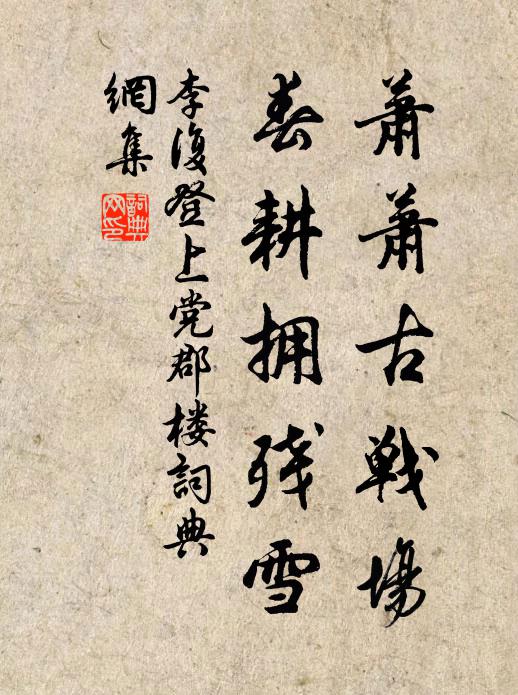 萧萧古戦場
春耕拥残雪
李復登上党郡楼詞典
網集
詞典网印